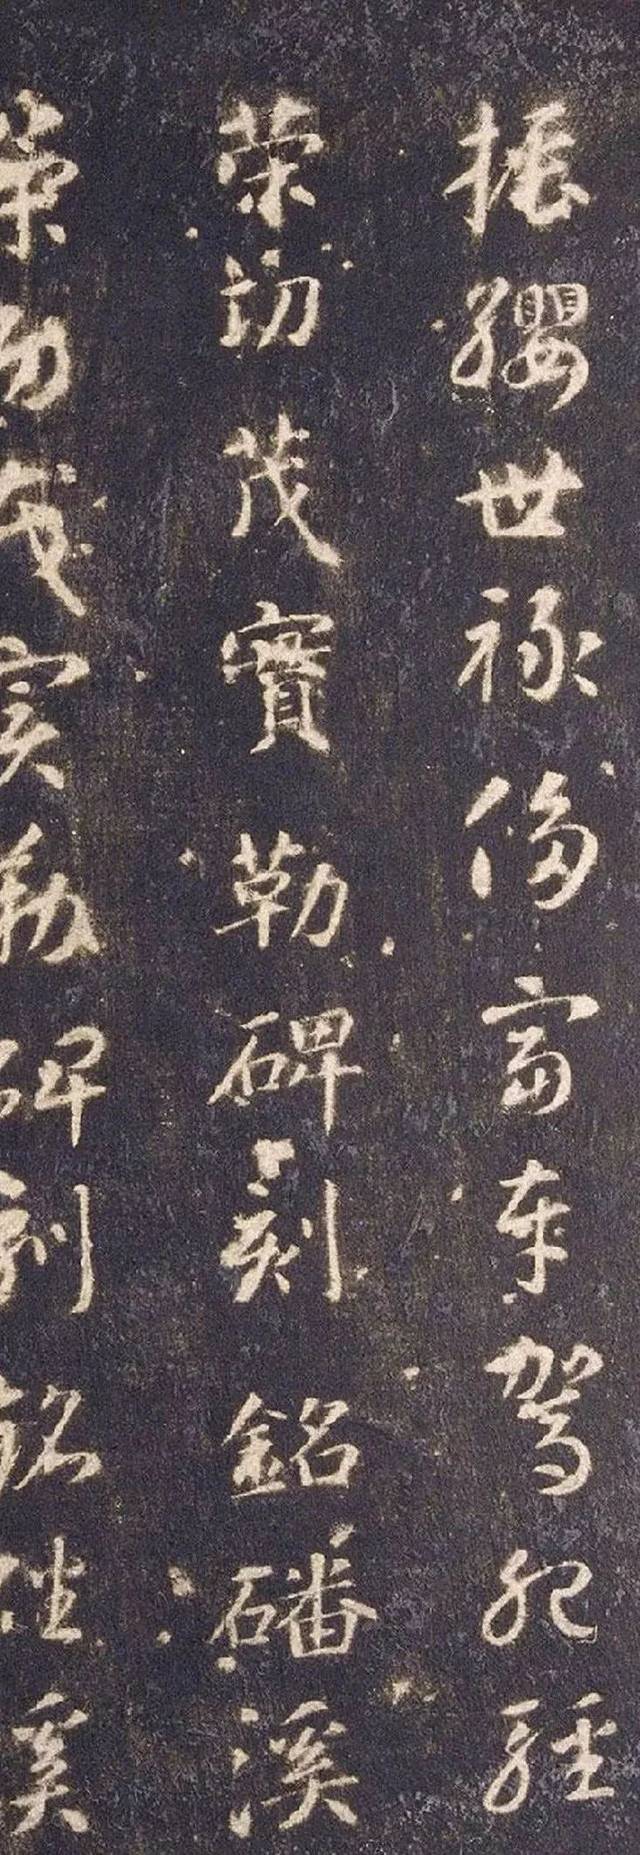 振纓世祿侈富車駕肥輕
策功茂實勒碑刻銘磻溪
策功茂實勒碑刻銘磻溪